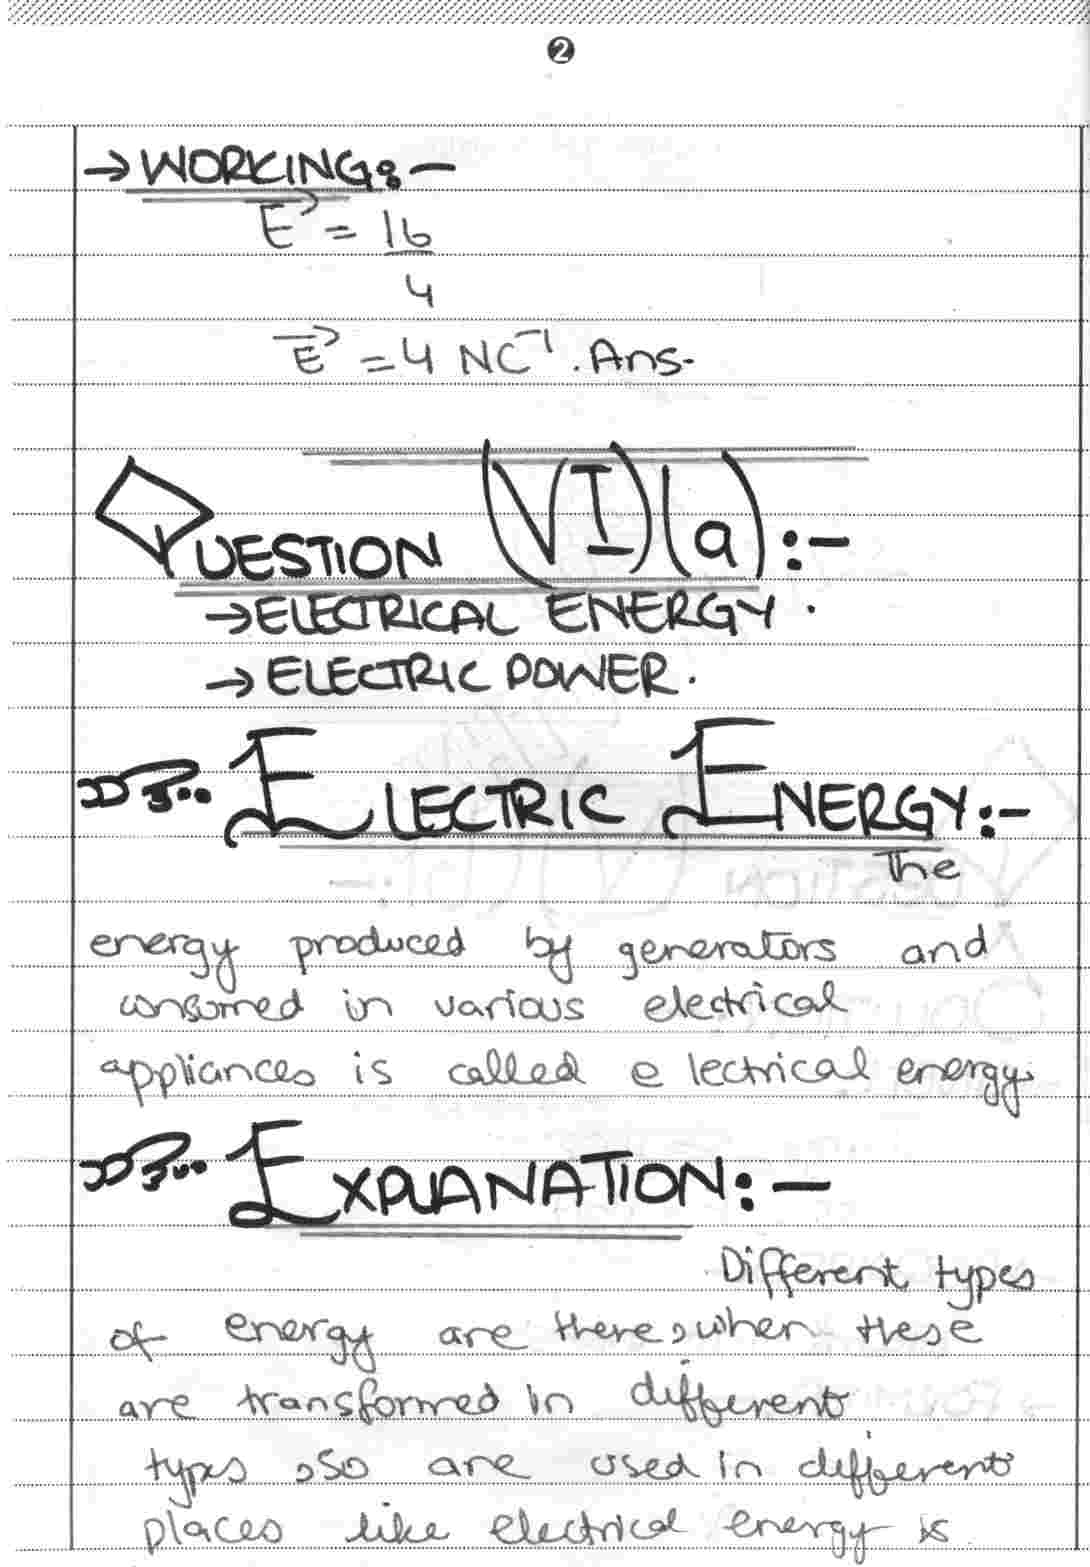 2
→ WORKING:-
E⃗ = 16
4
E⃗ = 4 NC⁻¹. Ans.
QUESTION (VI)(a):-
→ ELECTRICAL ENERGY.
→ ELECTRIC POWER.
ELECTRIC ENERGY:-
The
energy produced by generators and
consumed in various electrical
appliances is called electrical energy.
EXPLANATION:-
Different types
of energy are there, when these
are transformed in different
types, so are used in different
places like electrical energy is